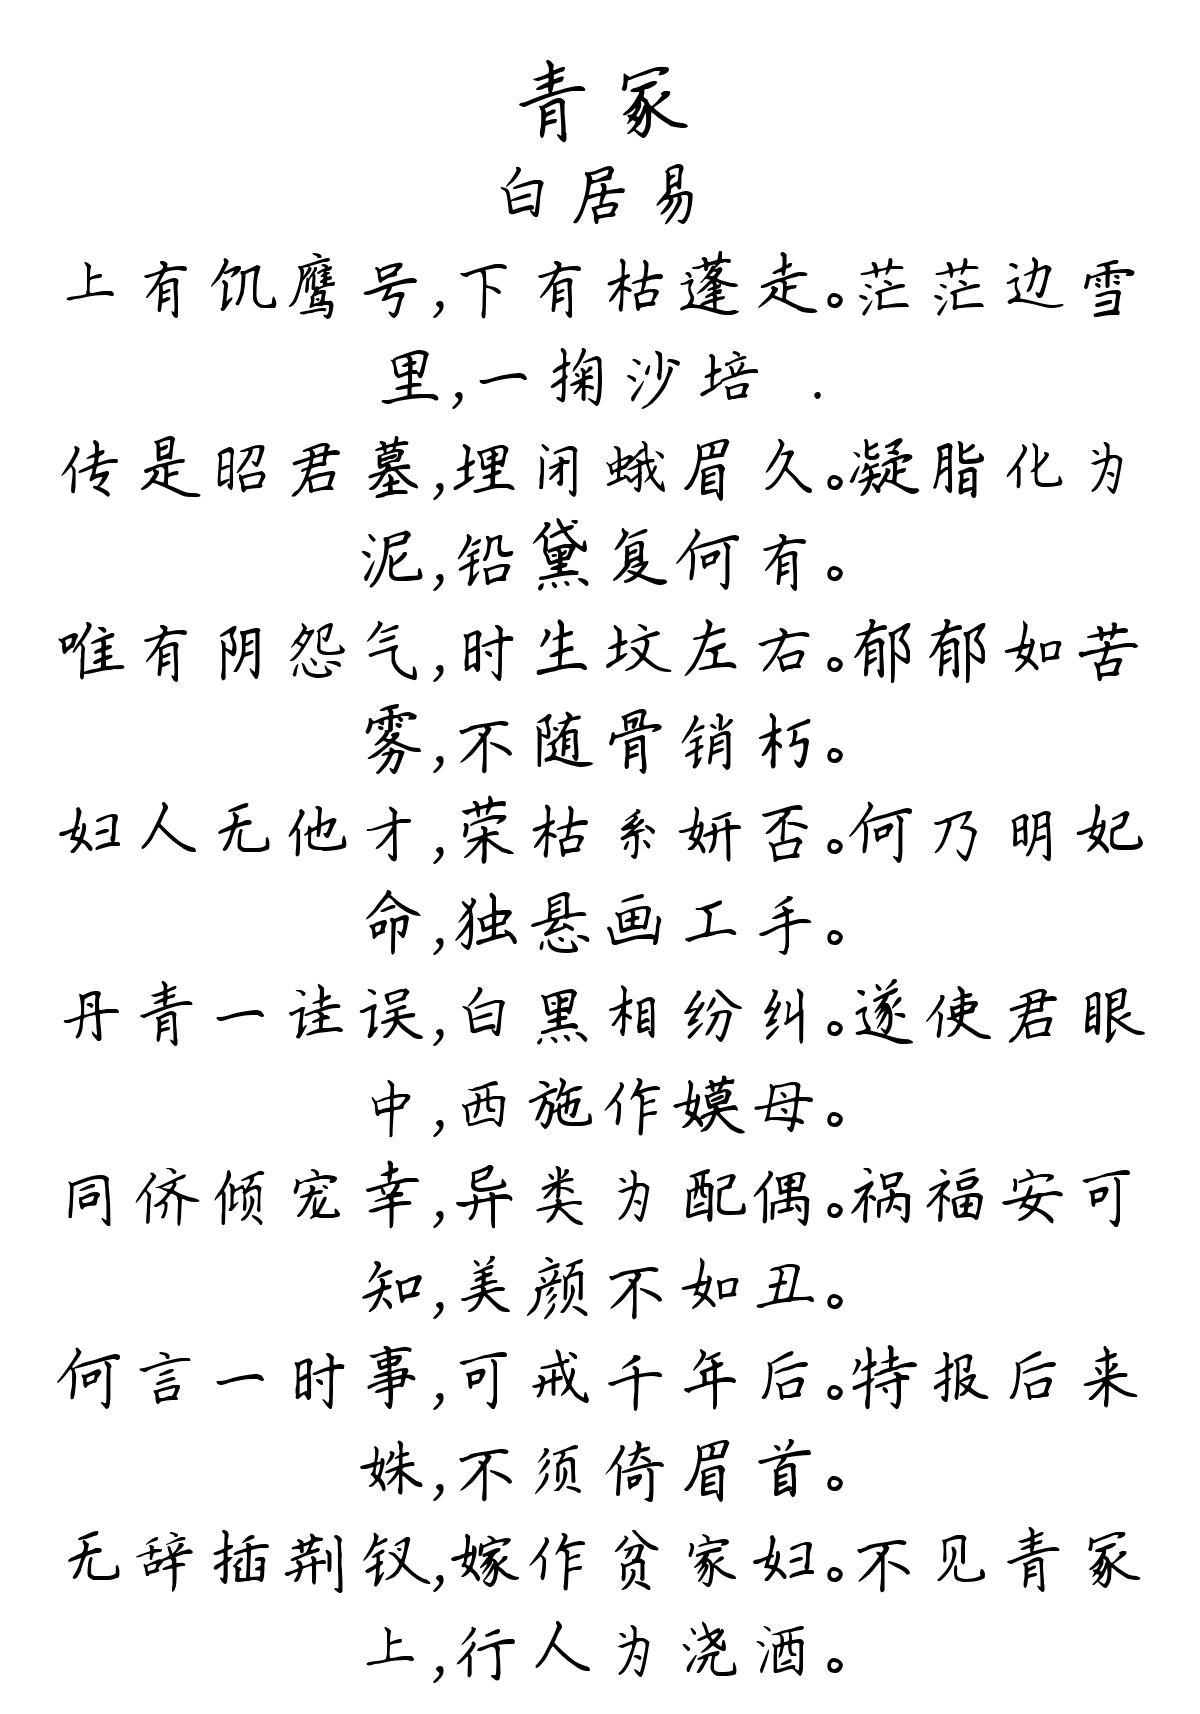 青冢
白居易
上有饥鹰号,下有枯蓬走。茫茫边雪
里,一掬沙培 .
传是昭君墓,埋闭蛾眉久。凝脂化为
泥,铅黛复何有。
唯有阴怨气,时生坟左右。郁郁如苦
雾,不随骨销朽。
妇人无他才,荣枯系妍否。何乃明妃
命,独悬画工手。
丹青一诖误,白黑相纷纠。遂使君眼
中,西施作嫫母。
同侪倾宠幸,异类为配偶。祸福安可
知,美颜不如丑。
何言一时事,可戒千年后。特报后来
姝,不须倚眉首。
无辞插荆钗,嫁作贫家妇。不见青冢
上,行人为浇酒。